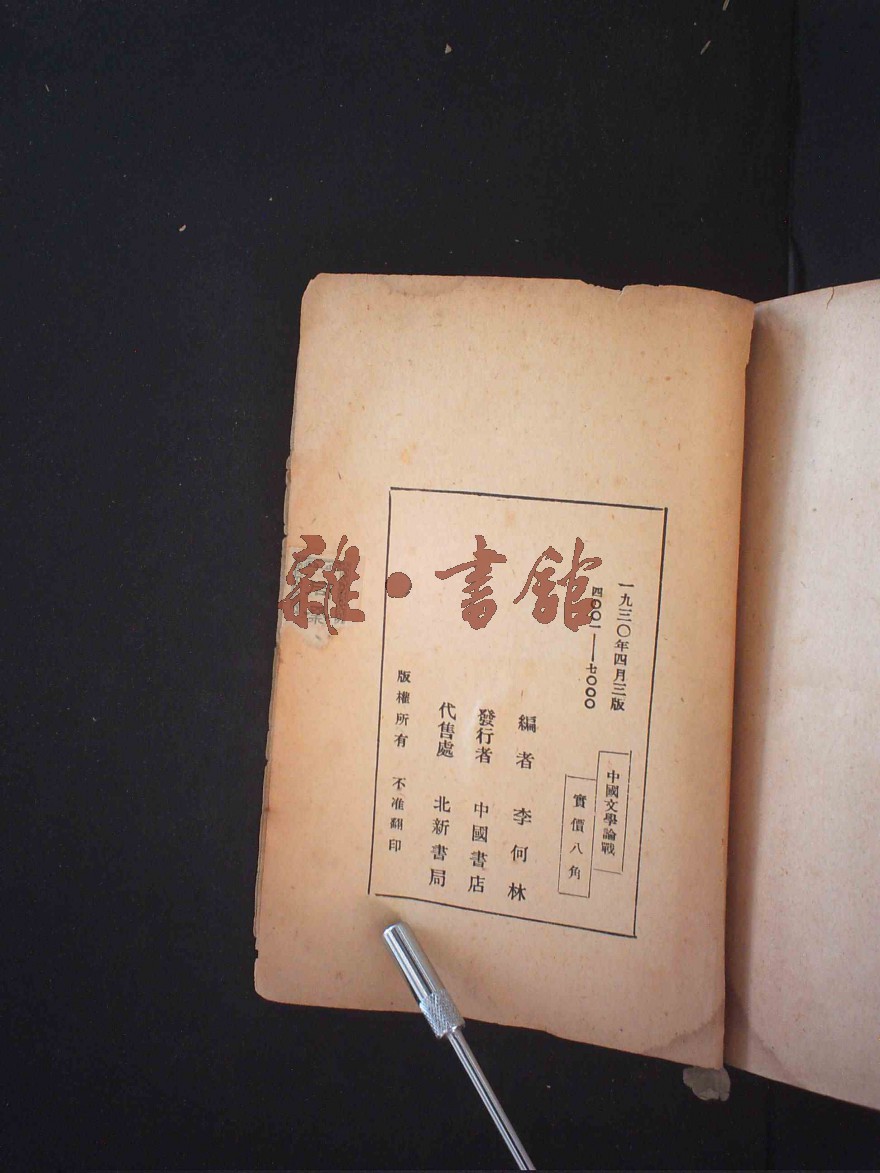 一九三〇年四月三版
四〇〇一——七〇〇〇
中國文學論戰
實價八角
編者 李何林
發行者 中國書店
代售處 北新書局
版權所有 不准翻印
雜·書館